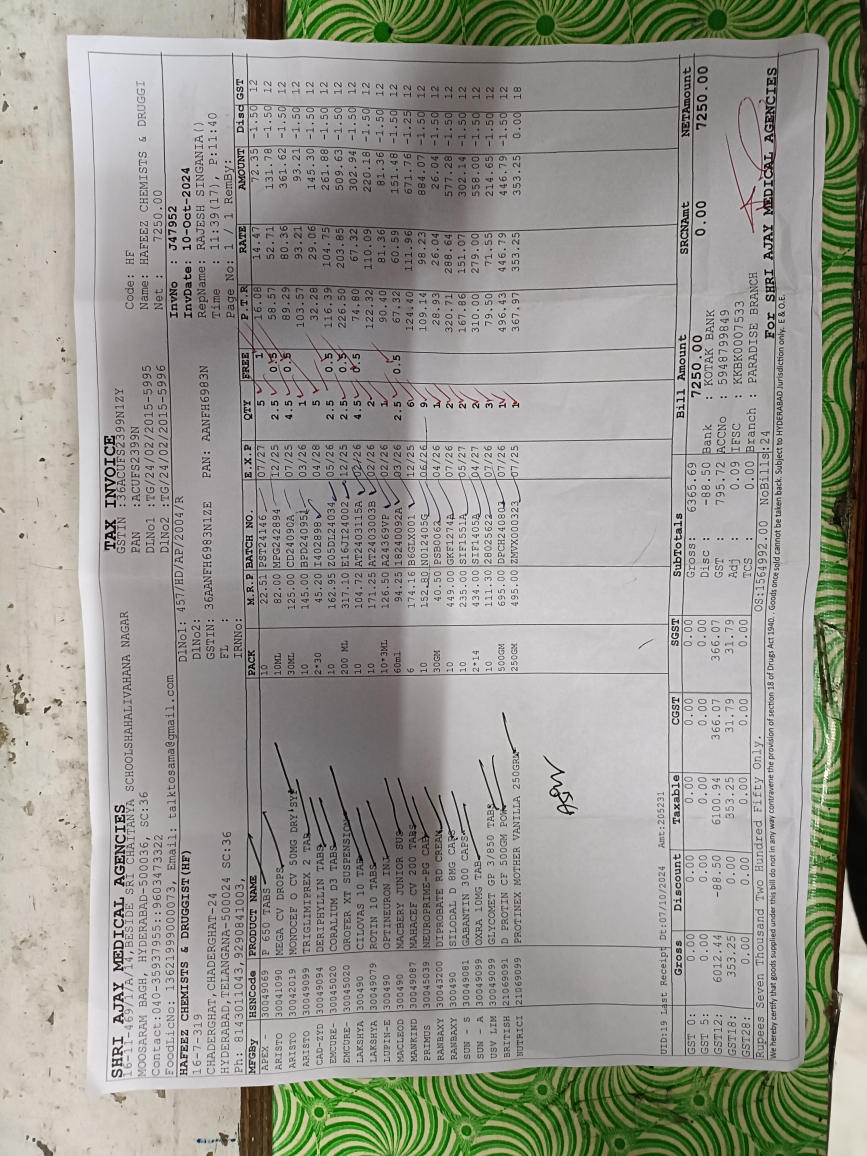 SHRI AJAY MEDICAL AGENCIES
16-11-469/1/A/14,BESIDE SRI CHAITANYA SCHOOLSHAHALIVAHANA NAGAR
MOOSARAM BAGH, HYDERABAD-500036, SC:36
Contact:040-35937955::9603473322
FoodLicNo: 13621999000073, Email: talktosama@gmail.com
TAX INVOICE
GSTIN :36ACUFS2399N1ZY
PAN :ACUFS2399N
DLNo1 :TG/24/02/2015-5995
DLNo2 :TG/24/02/2015-5996
Code: HF
Name: HAFEEZ CHEMISTS & DRUGGI
Net : 7250.00
HAFEEZ CHEMISTS & DRUGGIST(HF)
16-7-319
CHADERGHAT,CHADERGHAT-24
HYDERABAD,TELANGANA-500024 SC:36
Ph: 8143011043,9290841003,
DlNo1: 457/HD/AP/2004/R
DlNo2:
GSTIN: 36AANFH6983N1ZE PAN: AANFH6983N
FL :
IRNNo:
InvNo : J47952
InvDate: 10-Oct-2024
RepName: RAJESH SINGANIA()
Time : 11:39(17), P:11:40
Page No: 1 / 1 RemBy:
MFGBy HSNCode PRODUCT NAME PACK M.R.P BATCH NO. E.X.P QTY FREE P.T.R RATE AMOUNT Disc GST
APEX - 30049069 P 650 TABS 10 22.51 PST24146 07/27 5 1 16.08 14.47 72.35 -1.50 12
ARISTO 30041090 MEGA CV DROPS 10ML 82.00 MPG242894 12/25 2.5 0.5 58.57 52.71 131.78 -1.50 12
ARISTO 30042019 MONOCEF O CV 50MG DRY SY 30ML 125.00 CD24090A 07/25 4.5 0.5 89.29 80.36 361.62 -1.50 12
ARISTO 30049099 TRIGLIMIPREX 2 TAB 10 145.00 BPD24095 03/26 1 103.57 93.21 93.21 -1.50 12
CAD-ZYD 30049094 DERIPHYLLIN TABS 2*30 45.20 I402898 04/28 5 32.28 29.06 145.30 -1.50 12
EMCURE- 30045020 CORALIUM D3 TABS 10 162.95 Z05DL24034 05/26 2.5 0.5 116.39 104.75 261.88 -1.50 12
EMCURE- 30045020 OROFER XT SUSPENSION 200 ML 317.10 E16JI24002 12/25 2.5 0.5 226.50 203.85 509.63 -1.50 12
LAKSHYA 300490 CILOVAS 10 TAB 10 104.72 AT2403115A 02/26 4.5 0.5 74.80 67.32 302.94 -1.50 12
LAKSHYA 30049079 ROTIN 10 TABS 10 171.25 AT2403003B 02/26 2 122.32 110.09 220.18 -1.50 12
LUPIN-E 300490 OPTINEURON INJ 10*3ML 126.50 A24369VE 02/26 1 90.40 81.36 81.36 -1.50 12
MACLEOD 300490 MACBERY JUNIOR SUS 60ml 94.25 18240092A 03/26 2.5 0.5 67.32 60.59 151.48 -1.50 12
MANKIND 30049087 MAHACEF CV 200 TABS 6 174.16 B6GLX001 12/25 6 124.40 111.96 671.76 -1.25 12
PRIMUS 30045039 NEUROPRIME-PG CAP 10 152.80 N012405G 06/26 9 109.14 98.23 884.07 -1.50 12
RANBAXY 30043200 DIPROBATE RD CREAM 30GM 40.50 PSB0062 04/26 1 28.93 26.04 26.04 -1.50 12
RANBAXY 300490 SILODAL D 8MG CAPS 10 449.00 GKF1274A 07/26 2 320.71 288.64 577.28 -1.50 12
SUN - S 30049081 GABANTIN 300 CAPS 10 235.00 SIF1551A 05/27 2 167.86 151.07 302.14 -1.50 12
SUN - A 30049099 OXRA 10MG TAB 2*14 434.00 SIF1405A 04/27 2 310.00 279.00 558.00 -1.50 12
USV LIM 30049099 GLYCOMET GP 3/850 TABS 10 111.30 28025628 07/26 3 79.50 71.55 214.65 -1.50 12
BRITISH 21069091 D PROTIN CHOC 500GM POW 500GM 695.00 DPCH240803 07/26 1 496.43 446.79 446.79 -1.50 12
NUTRICI 21069099 PROTINEX MOTHER VANILLA 250GRA 250GM 495.00 ZMVX000323 07/25 1 367.97 353.25 353.25 0.00 18
UID:19 Last Receipt Dt:07/10/2024 Amt:205231
Gross Discount Taxable CGST SGST
GST 0: 0.00 0.00 0.00 0.00 0.00
GST 5: 0.00 0.00 0.00 0.00 0.00
GST12: 6012.44 -88.50 6100.94 366.07 366.07
GST18: 353.25 0.00 353.25 31.79 31.79
GST28: 0.00 0.00 0.00 0.00 0.00
SubTotals
Gross: 6365.69
Disc : -88.50
GST : 795.72
Adj : 0.09
TCS : 0.00
Bill Amount SRCNAmt NETAmount
7250.00 0.00 7250.00
Bank : KOTAK BANK
ACCNo : 5948799849
IFSC : KKBK0007533
Branch : PARADISE BRANCH
Rupees Seven Thousand Two Hundred Fifty Only. OS:1564992.00 NoBills:24
For SHRI AJAY MEDICAL AGENCIES
We hereby certify that goods supplied under this bill do not in any way contravene the provision of section 18 of Drugs Act 1940. Goods once sold cannot be taken back. Subject to HYDERABAD Jurisdiction only. E & O.E.